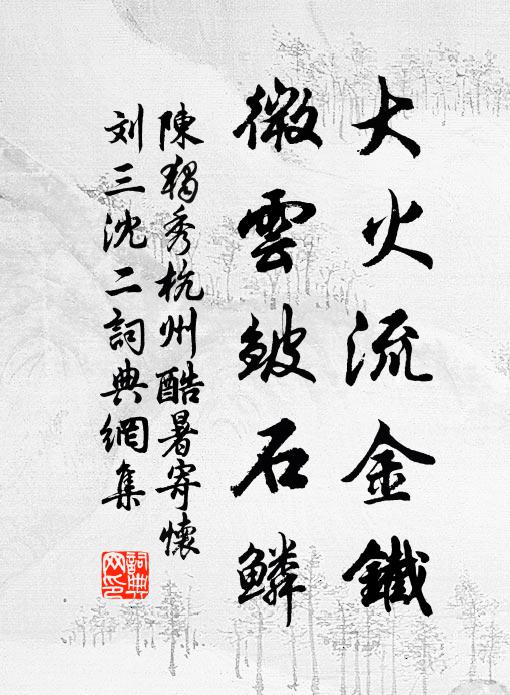 大火流金鐵
微雲皴石鱗
陳獨秀杭州酷暑寄懷
刘三沈二詞典網集
詞典网印